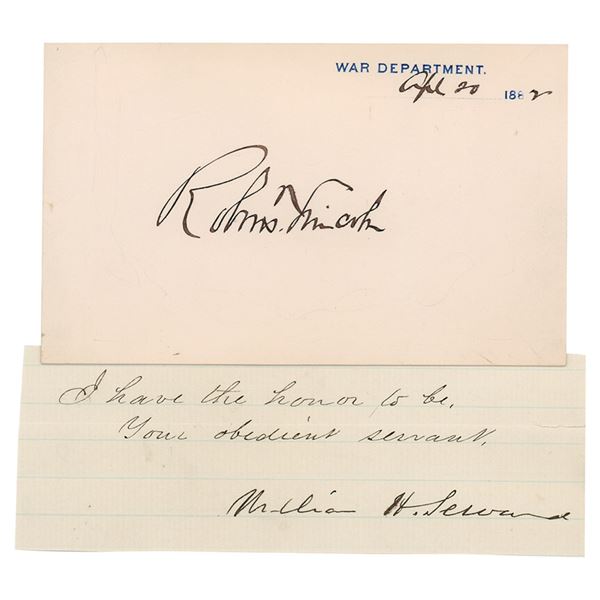 WAR DEPARTMENT.
Apl 20 1882
Robert T. Lincoln
I have the honor to be.
Your obedient servant.
William H. Seward